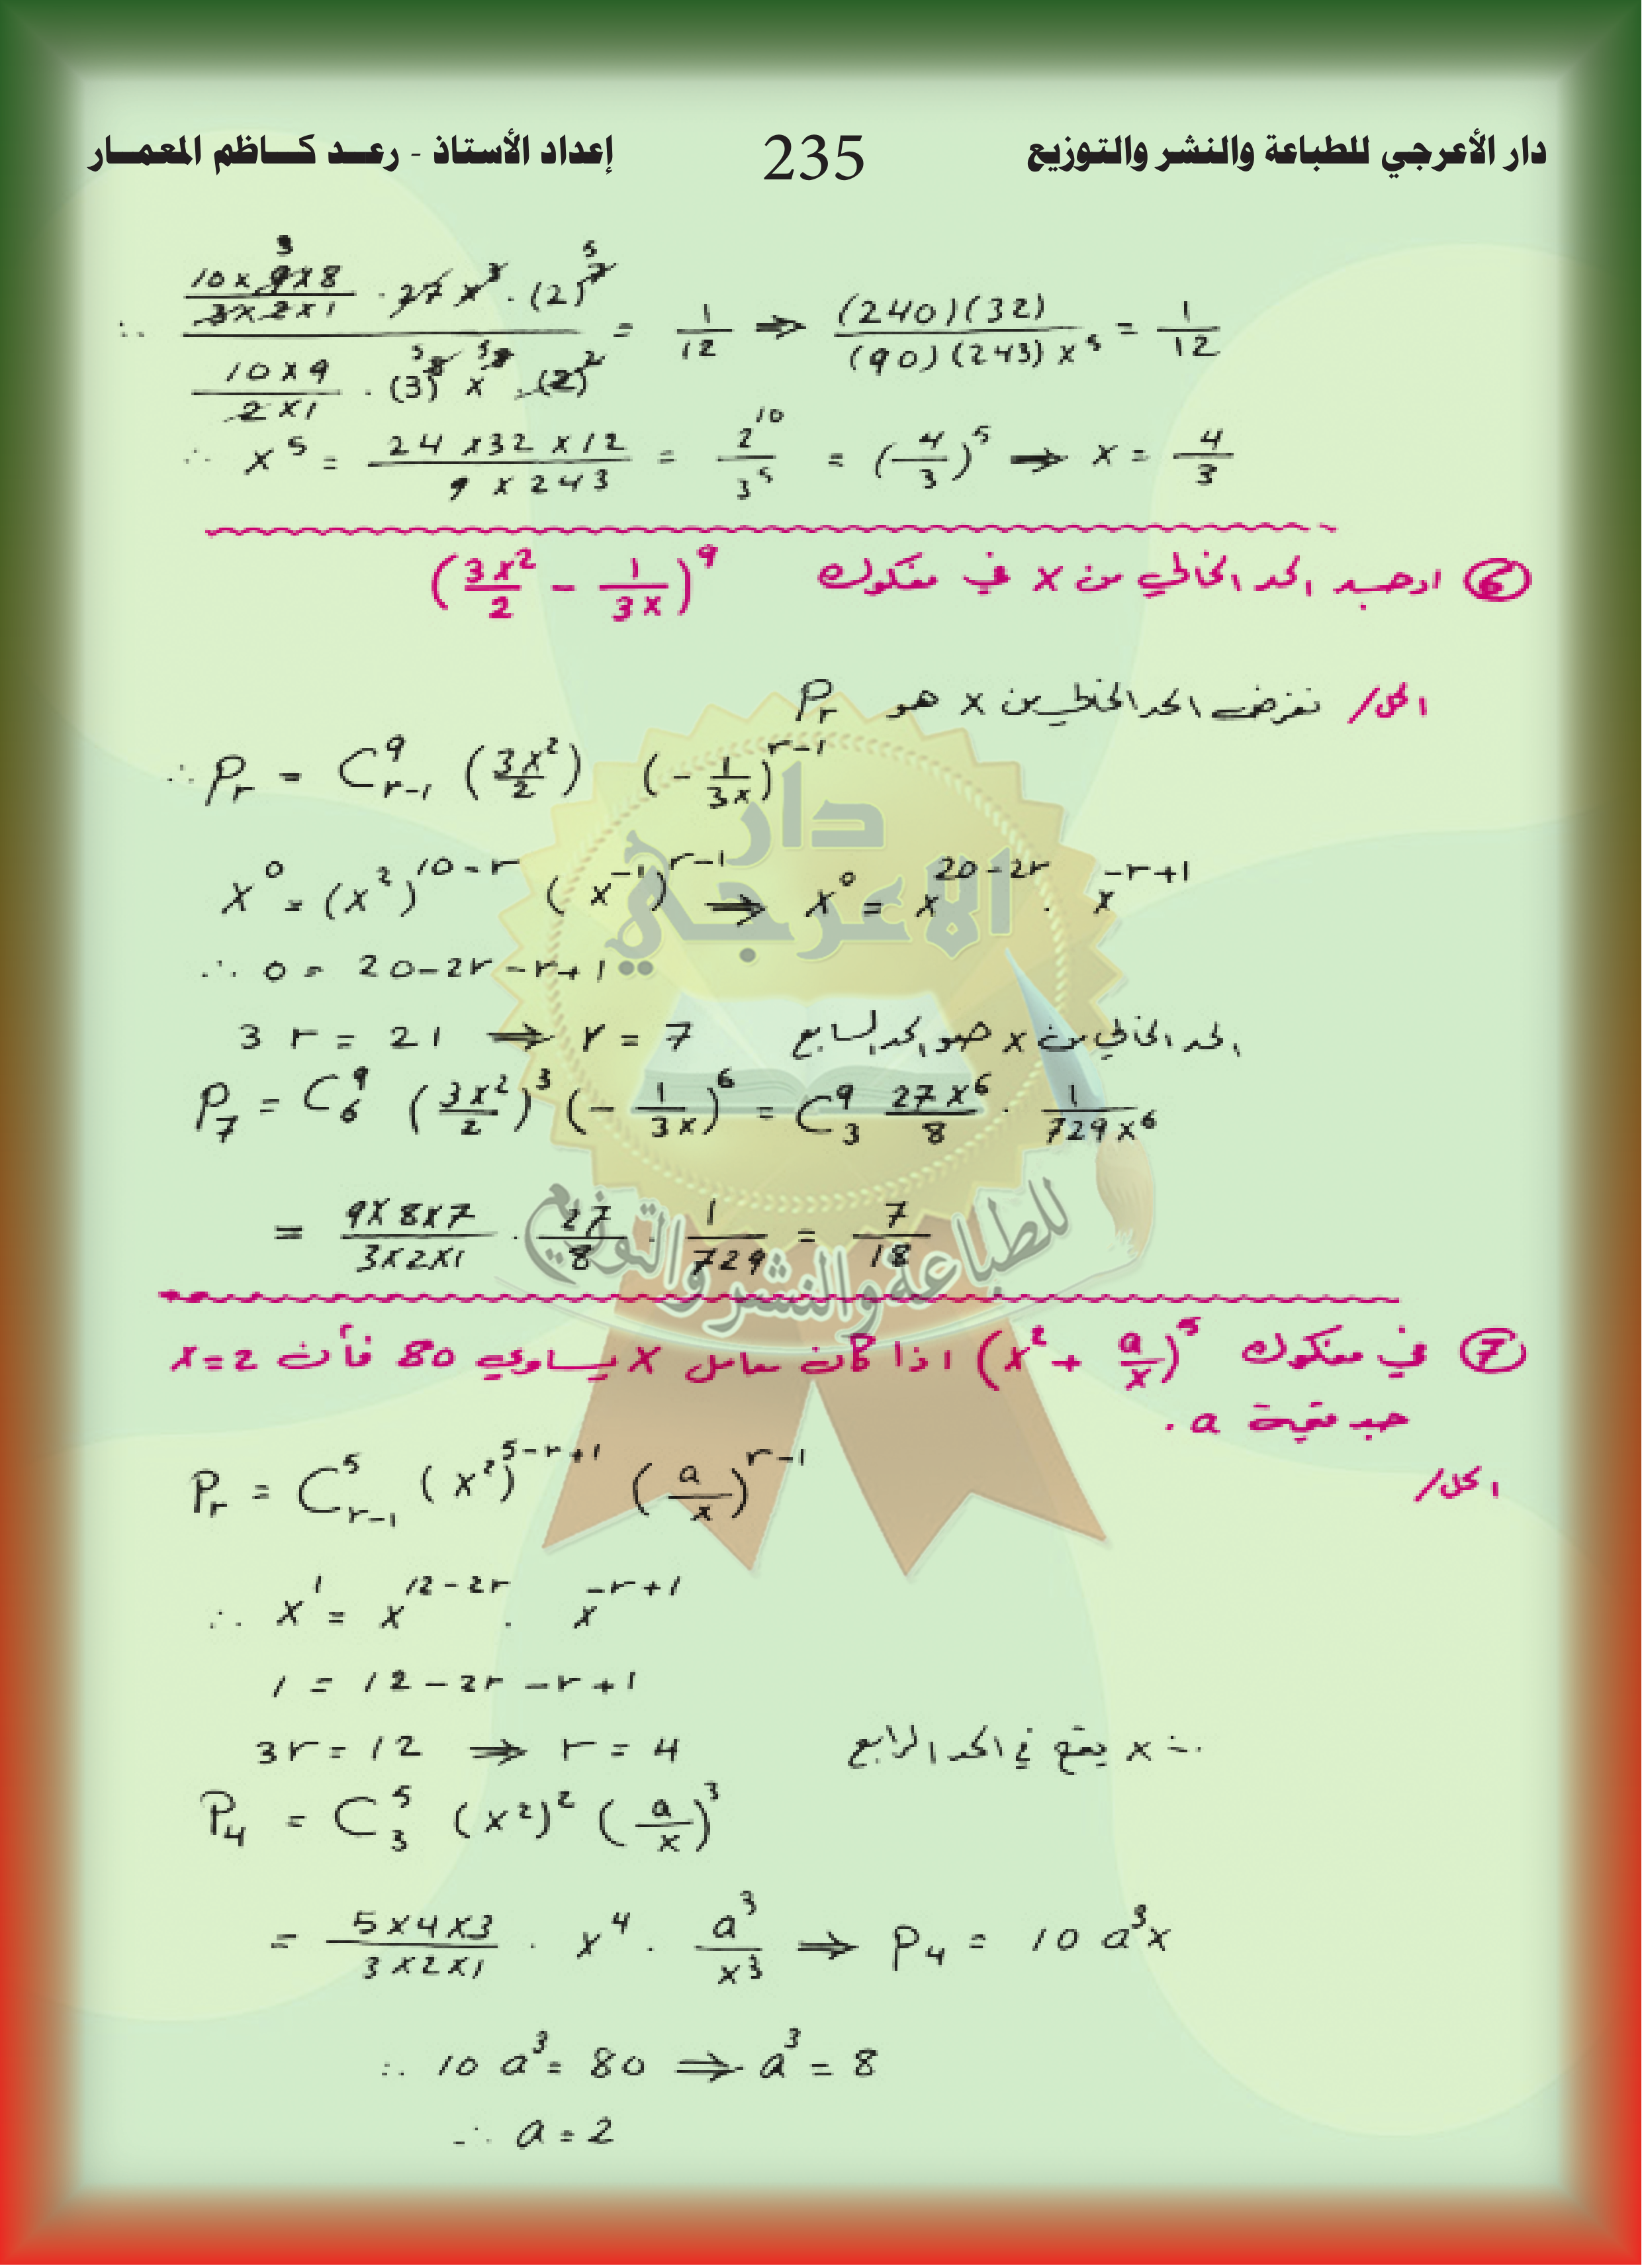 دار الأعرجي للطباعة والنشر والتوزيع 235 إعداد الأستاذ - رعد كاظم المعمار
∴ (10×9×8 / 3×2×1 · 27 x³ · (2)⁷) / (10×9 / 2×1 · (3)⁸ x⁸ · (2)²) = 1/12 ⇒ (240)(32) / (90)(243) x⁵ = 1/12
∴ x⁵ = 24 × 32 × 12 / 9 × 243 = 2¹⁰ / 3⁵ = (4/3)⁵ ⇒ x = 4/3
⑥ اوجد الحد الخالي من x في مفكوك (3x²/2 - 1/3x)⁹
الحل/ نفرض الحد الخالي من x هو Pr
∴ Pr = C⁹r-1 (3x²/2) (-1/3x)^r-1
x⁰ = (x²)^10-r (x⁻¹)^r-1 ⇒ x⁰ = x^20-2r · x^-r+1
∴ 0 = 20-2r-r+1
3r = 21 ⇒ r = 7 الحد الخالي من x هو الحد السابع
P₇ = C⁹₆ (3x²/2)³ (-1/3x)⁶ = C⁹₃ 27x⁶/8 · 1/729x⁶
= 9×8×7 / 3×2×1 · 27/8 · 1/729 = 7/18
دار
الاعرجي
للطباعة والنشر والتوزيع
⑦ في مفكوك (x² + a/x)⁵ اذا كان معامل x يساوي 80 فأن x=2
جد قيمة a.
الحل/
Pr = C⁵r-1 (x²)^5-r+1 (a/x)^r-1
∴ x¹ = x^12-2r · x^-r+1
1 = 12-2r-r+1
3r = 12 ⇒ r = 4 ∴ x يقع في الحد الرابع
P₄ = C⁵₃ (x²)² (a/x)³
= 5×4×3 / 3×2×1 · x⁴ · a³/x³ ⇒ P₄ = 10 a³x
∴ 10 a³ = 80 ⇒ a³ = 8
∴ a = 2